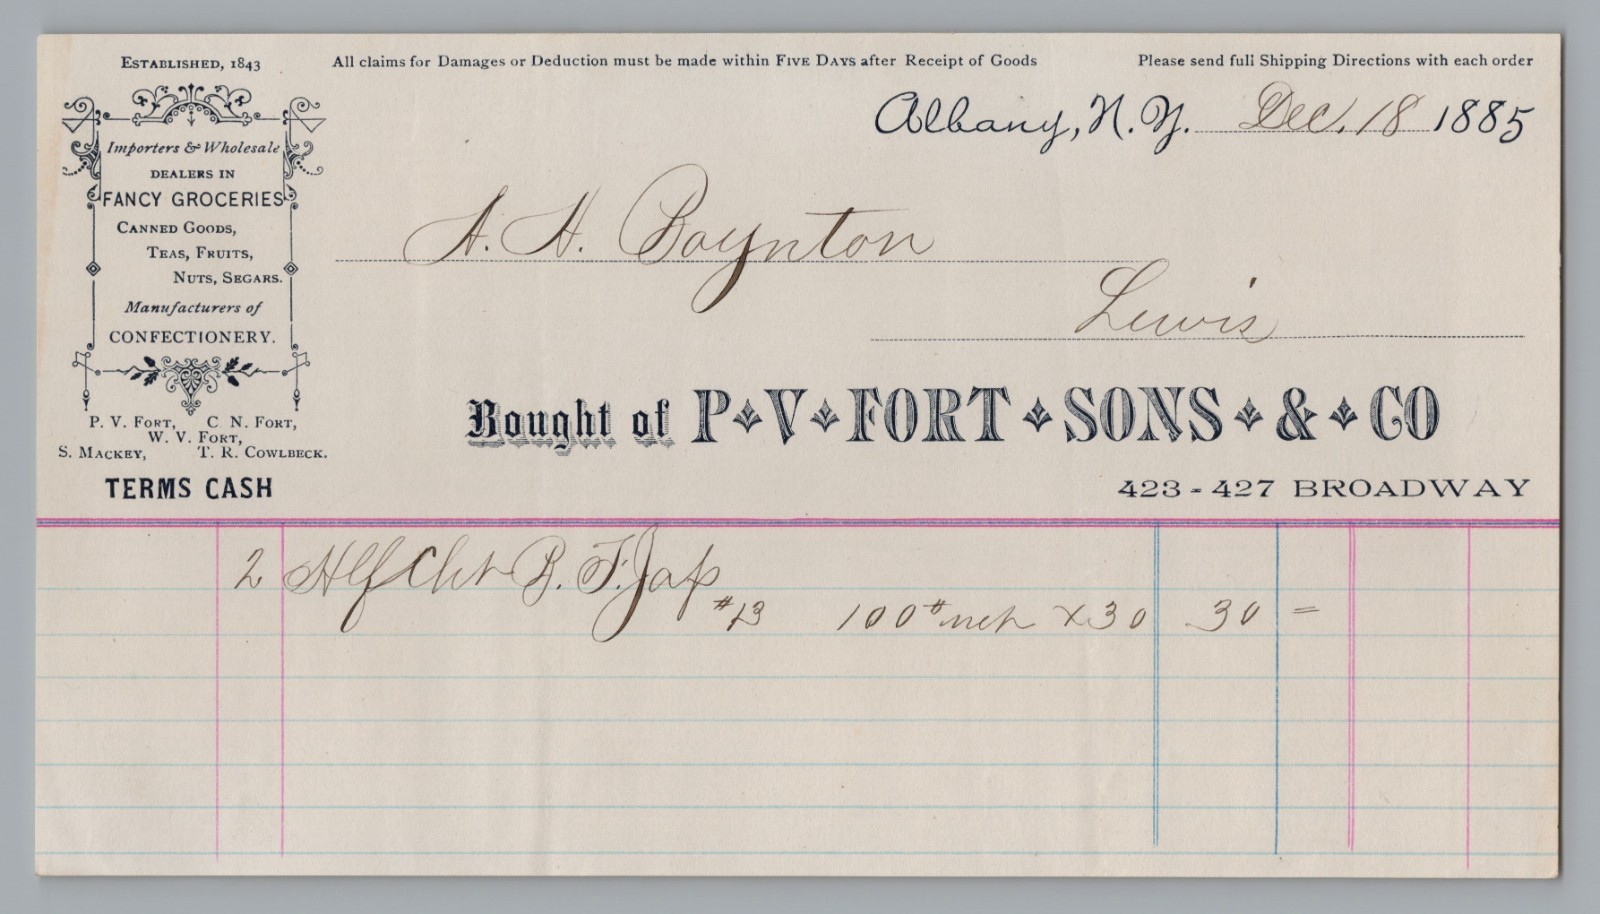 Established, 1843
All claims for Damages or Deduction must be made within Five Days after Receipt of Goods
Please send full Shipping Directions with each order
Albany, N. Y. Dec. 18 1885
Importers & Wholesale
DEALERS IN
FANCY GROCERIES
Canned Goods,
Teas, Fruits,
Nuts, Segars.
Manufacturers of
CONFECTIONERY.
P. V. Fort, C. N. Fort,
W. V. Fort,
S. Mackey, T. R. Cowlbeck.
TERMS CASH
A. H. Boynton
Lewis
Bought of P V FORT SONS & CO
423-427 BROADWAY
2 Hlf Cht B. F. Jap
#13 100# net x30 30 =